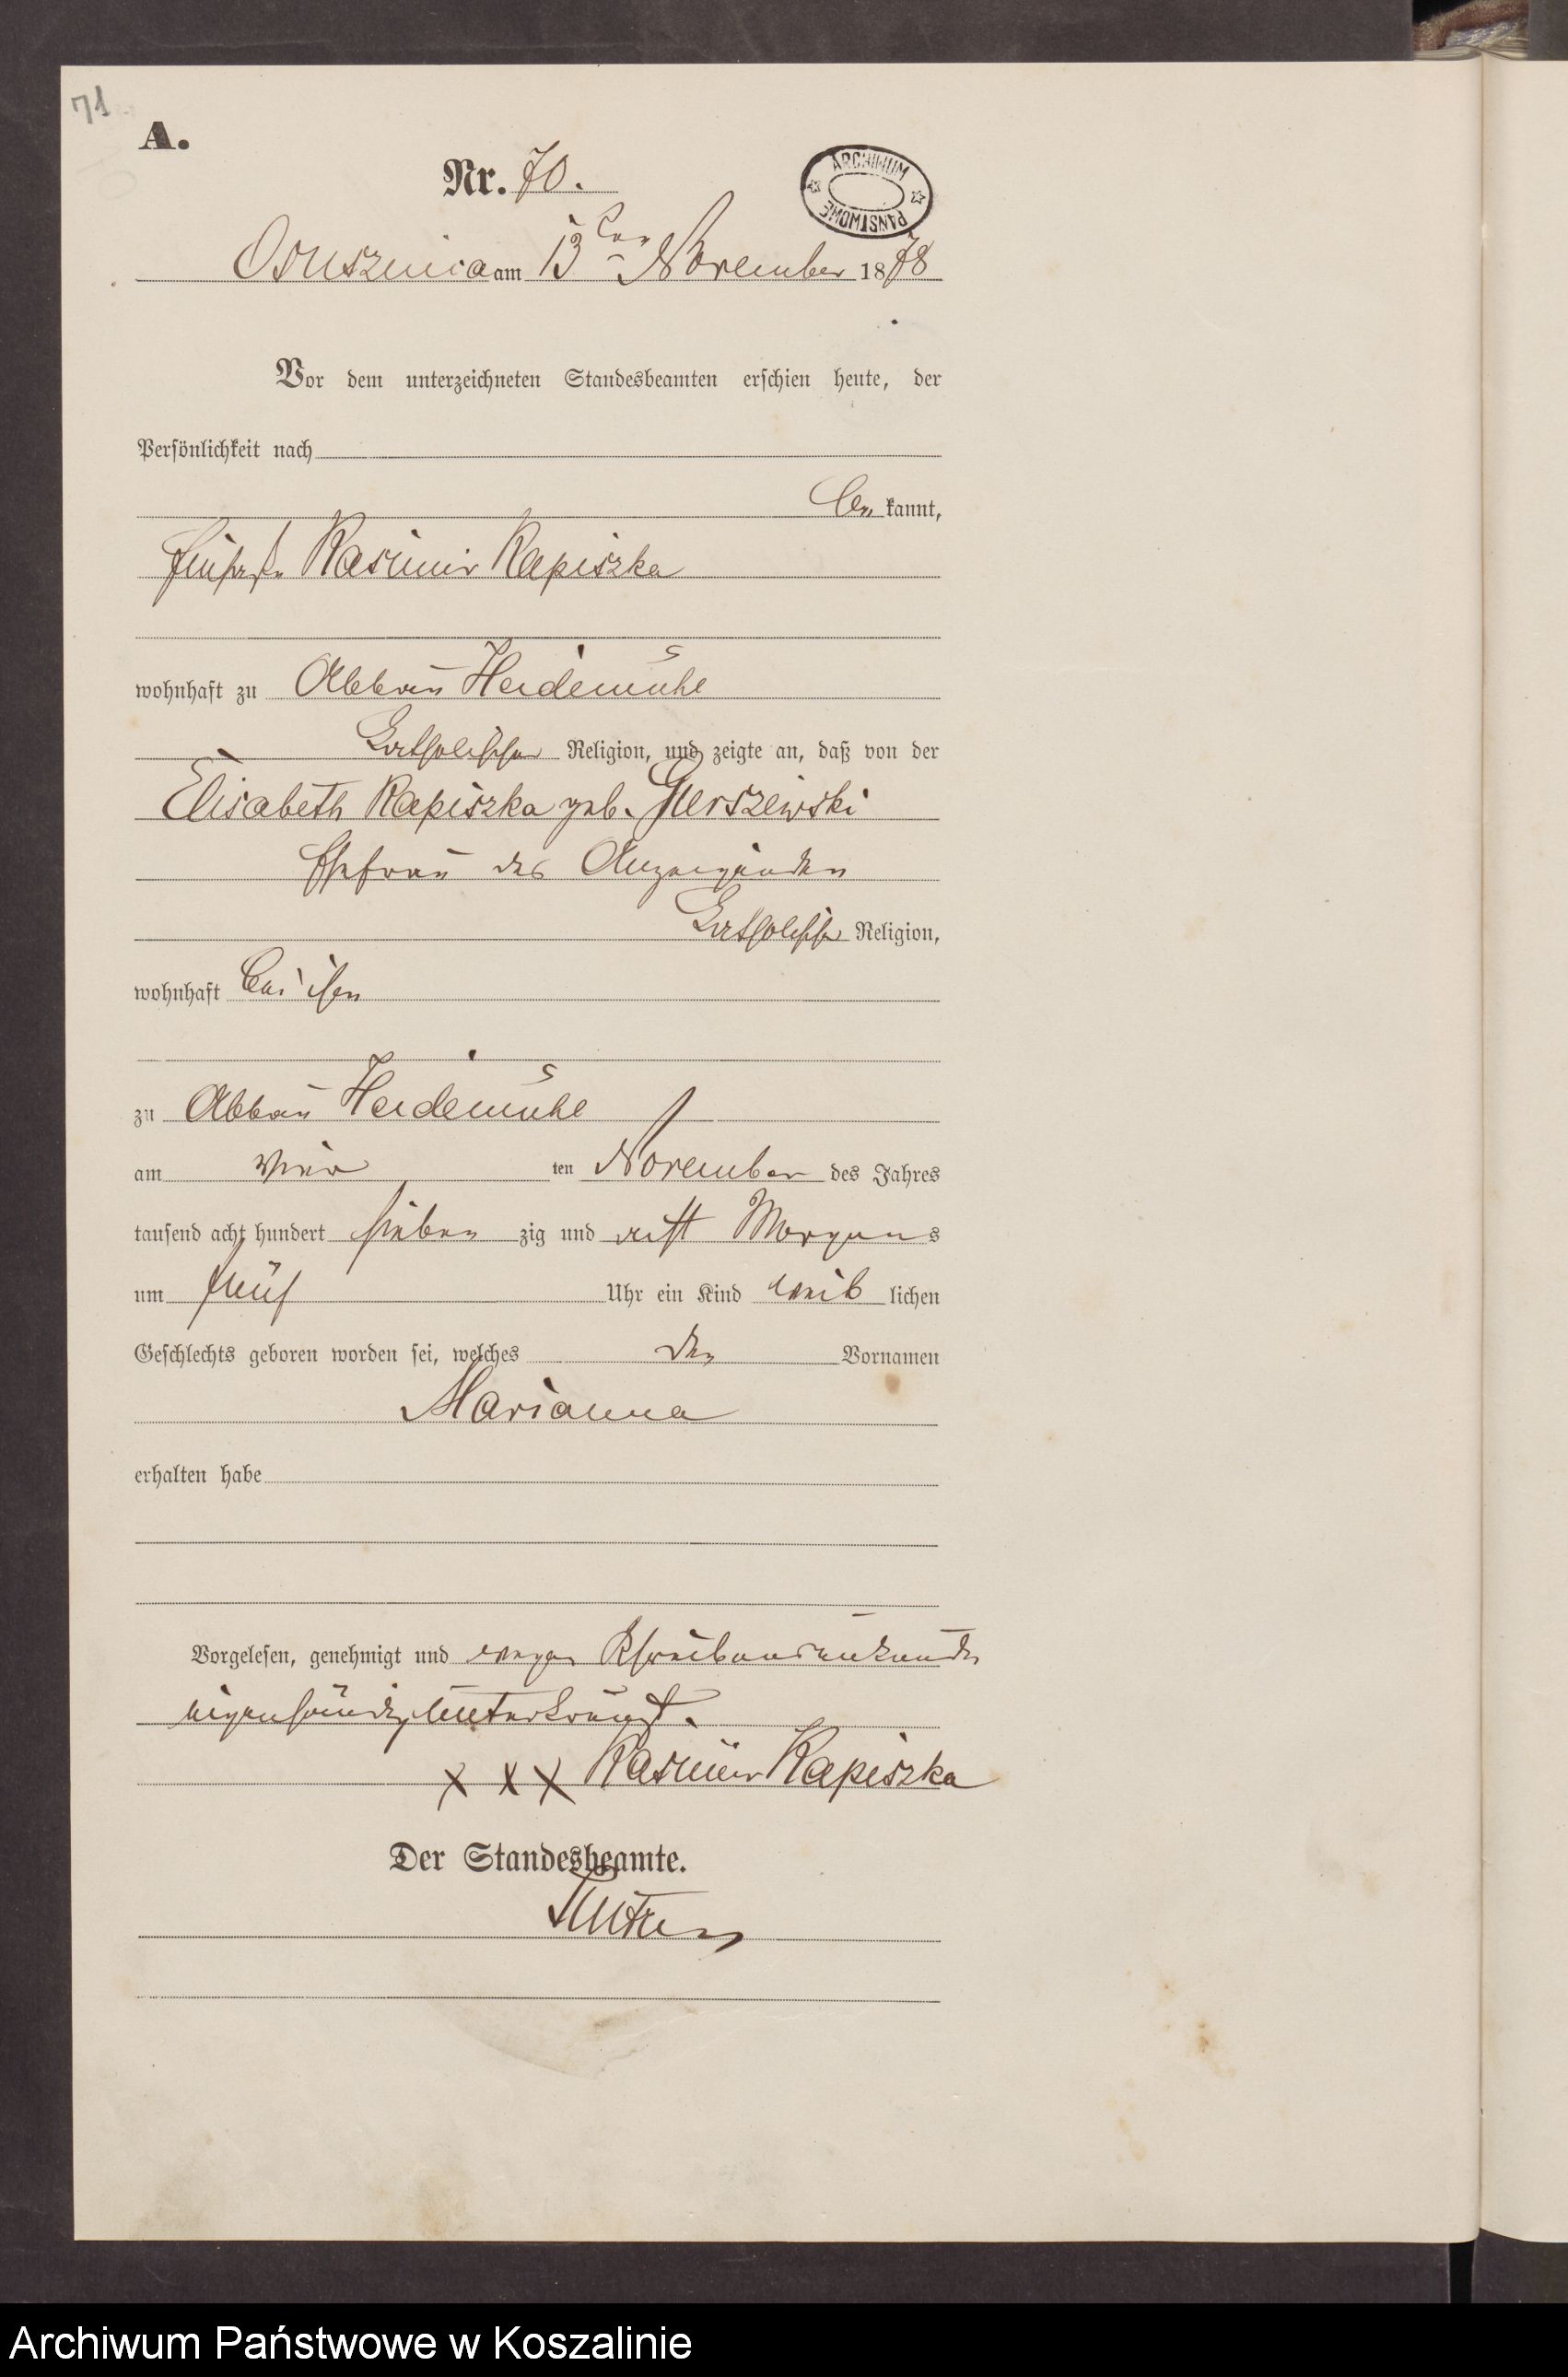 71
A.
Nr. 70.
ARCHIWUM PAŃSTWOWE
Osusznica am 13ten November 1878
Vor dem unterzeichneten Standesbeamten erschien heute, der
Persönlichkeit nach
be kannt,
Kasimir Kapiszka
wohnhaft zu Abbau Heidemühl
katholischer Religion, und zeigte an, daß von der
Elisabeth Kapiszka geb. Gierszewski
Ehefrau des Anzeigenden
katholischer Religion,
wohnhaft bei ihm
zu Abbau Heidemühl
am vier ten November des Jahres
tausend acht hundert sieben zig und acht Morgens
um fünf Uhr ein Kind weib lichen
Geschlechts geboren worden sei, welches den Vornamen
Marianna
erhalten habe
Vorgelesen, genehmigt und wegen Schreibensunkunde
eigenhändig unterkreuzt.
x x x Kasimir Kapiszka
Der Standesbeamte.
Archiwum Państwowe w Koszalinie